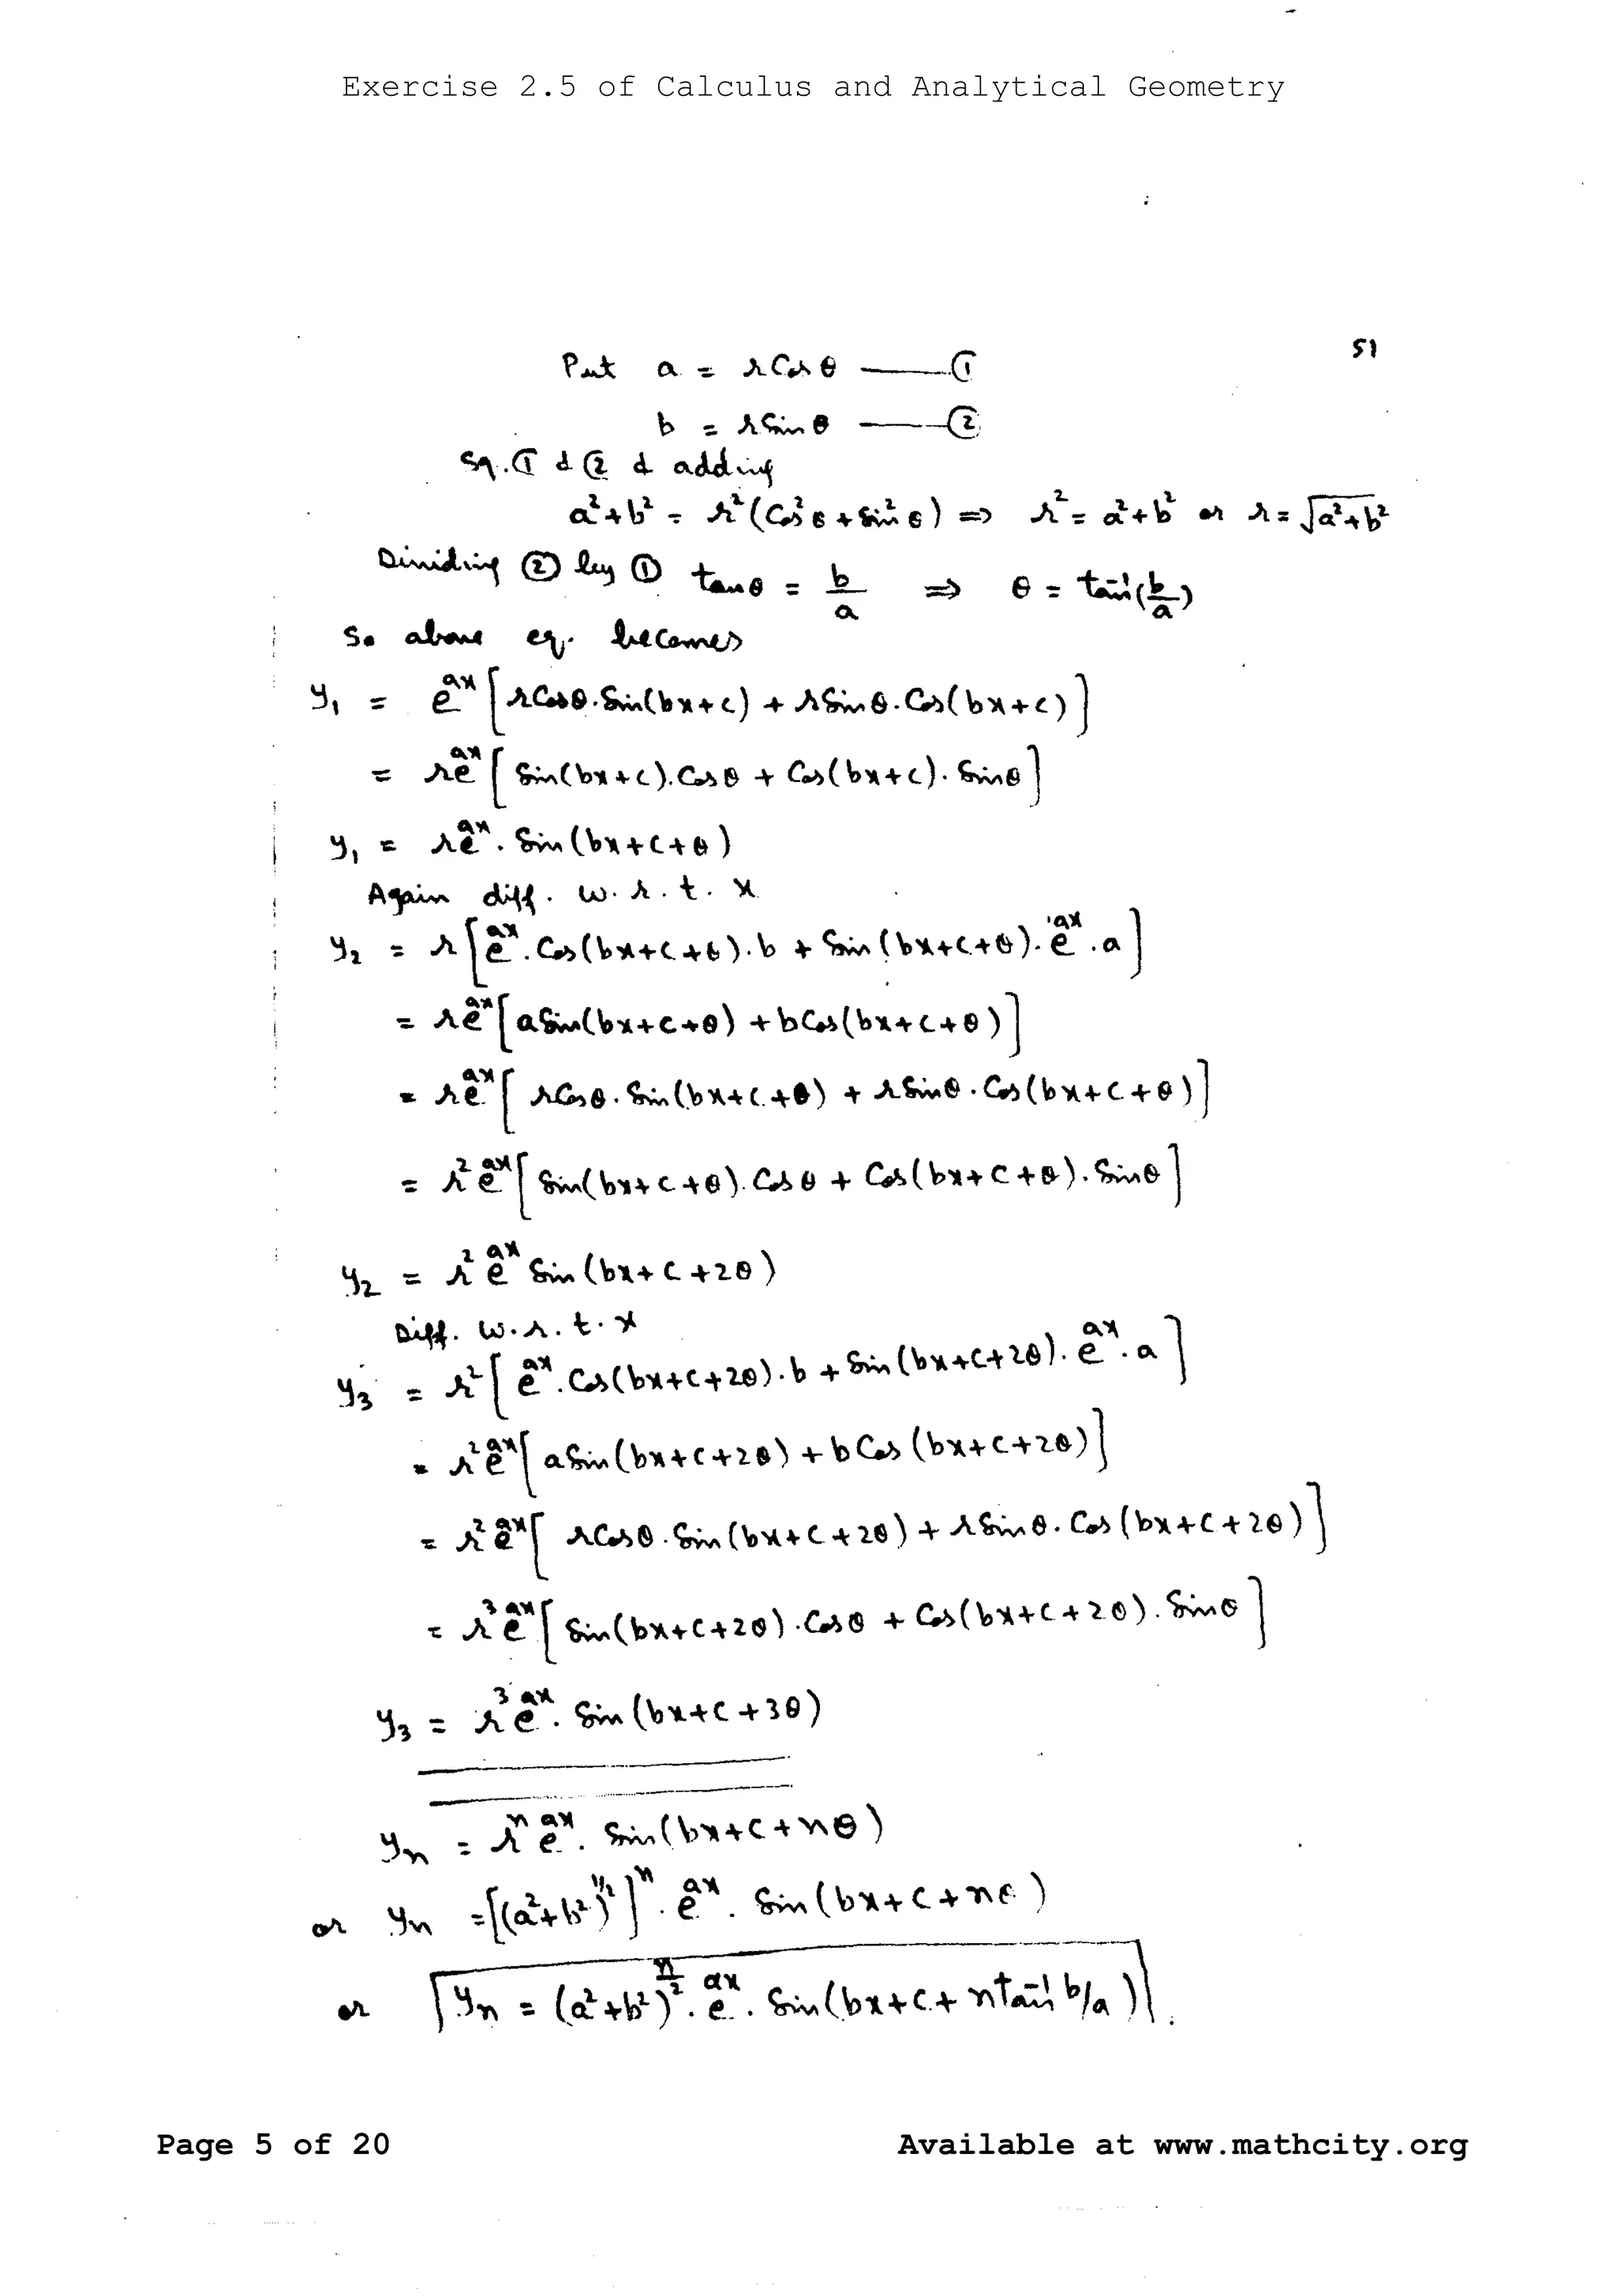 Exercise 2.5 of Calculus and Analytical Geometry
51
Put a = r Cos θ ——— ①
b = r Sin θ ——— ②
Sq. ① & ② & adding
a²+b² = r²(Cos²θ + Sin²θ) ⇒ r² = a²+b² or r = √(a²+b²)
Dividing ② by ① tanθ = b/a ⇒ θ = tan⁻¹(b/a)
So above eq. becomes
y₁ = e^ax [rCosθ.Sin(bx+c) + rSinθ.Cos(bx+c)]
= re^ax [Sin(bx+c).Cosθ + Cos(bx+c).Sinθ]
y₁ = re^ax . Sin(bx+c+θ)
Again diff. w.r.t. x
y₂ = r[e^ax . Cos(bx+c+θ).b + Sin(bx+c+θ).e^ax .a]
= re^ax [aSin(bx+c+θ) + bCos(bx+c+θ)]
= re^ax [rCosθ.Sin(bx+c+θ) + rSinθ.Cos(bx+c+θ)]
= r²e^ax [Sin(bx+c+θ).Cosθ + Cos(bx+c+θ).Sinθ]
y₂ = r²e^ax Sin(bx+c+2θ)
Diff. w.r.t. x
y₃ = r²[e^ax . Cos(bx+c+2θ).b + Sin(bx+c+2θ).e^ax .a]
= r²e^ax [aSin(bx+c+2θ) + bCos(bx+c+2θ)]
= r²e^ax [rCosθ.Sin(bx+c+2θ) + rSinθ.Cos(bx+c+2θ)]
= r³e^ax [Sin(bx+c+2θ).Cosθ + Cos(bx+c+2θ).Sinθ]
y₃ = r³e^ax . Sin(bx+c+3θ)
yₙ = rⁿe^ax . Sin(bx+c+nθ)
or yₙ = [(a²+b²)^1/2]ⁿ . e^ax . Sin(bx+c+nθ)
or yₙ = (a²+b²)^n/2 . e^ax . Sin(bx+c+ntan⁻¹ b/a).
Page 5 of 20
Available at www.mathcity.org